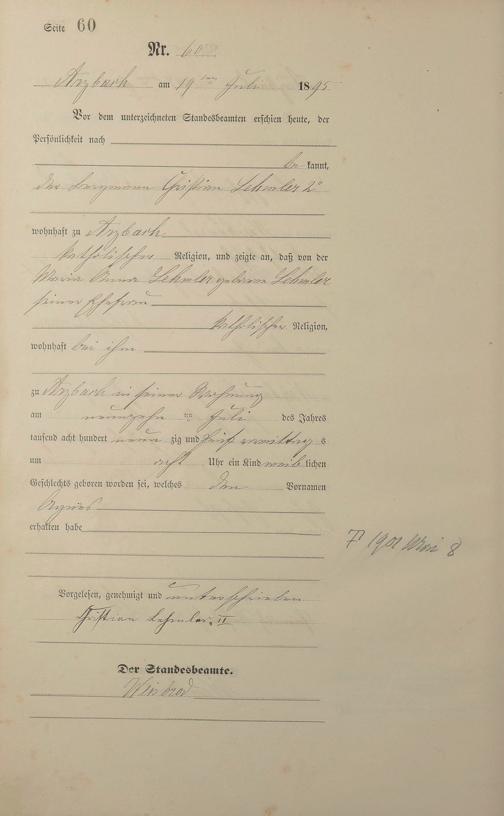 Seite 60
Nr. 60
Arzbach am 19ten Juli 1895
Vor dem unterzeichneten Standesbeamten erschien heute, der
Persönlichkeit nach
be kannt,
der Bergmann Christian Lehmler 2r
wohnhaft zu Arzbach
katholischer Religion, und zeigte an, daß von der
Maria Anna Lehmler geborene Lehmler
seiner Ehefrau
katholischer Religion,
wohnhaft bei ihm
zu Arzbach in seiner Wohnung
am neunzehn ten Juli des Jahres
tausend acht hundert neun zig und fünf vormittag s
um acht Uhr ein Kind weib lichen
Geschlechts geboren worden sei, welches den Vornamen
Agnes
erhalten habe
† 1901 Mai 8
Vorgelesen, genehmigt und unterschrieben
Christian Lehmler. II
Der Standesbeamte.